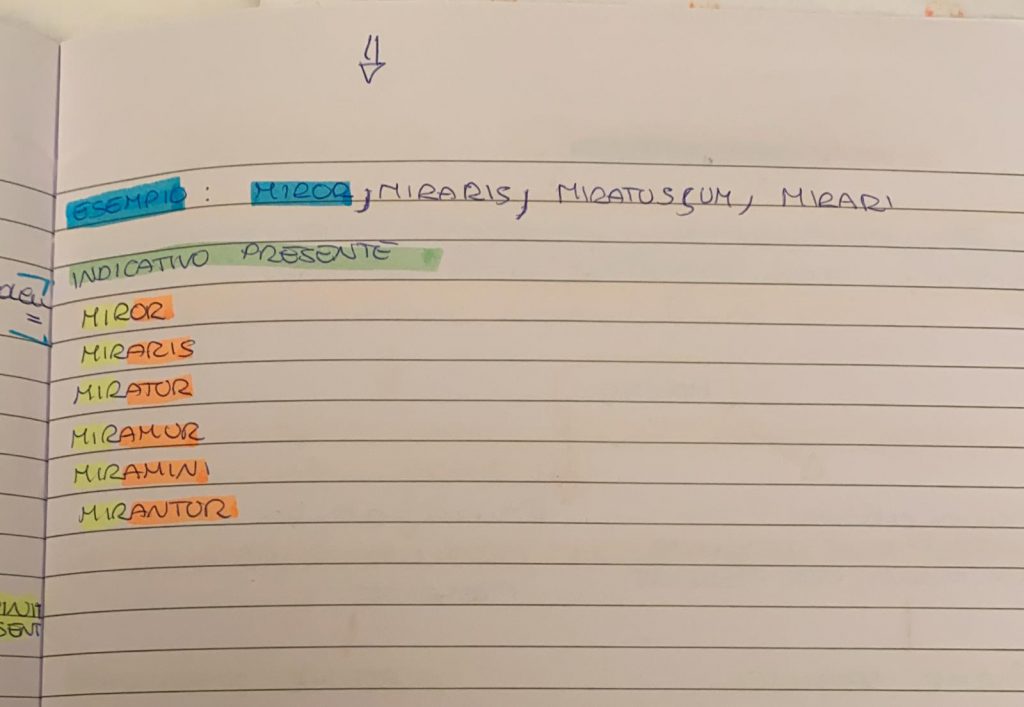 ESEMPIO : MIROR, MIRARIS, MIRATUS SUM, MIRARI
INDICATIVO PRESENTE
MIROR
MIRARIS
MIRATUR
MIRAMUR
MIRAMINI
MIRANTOR